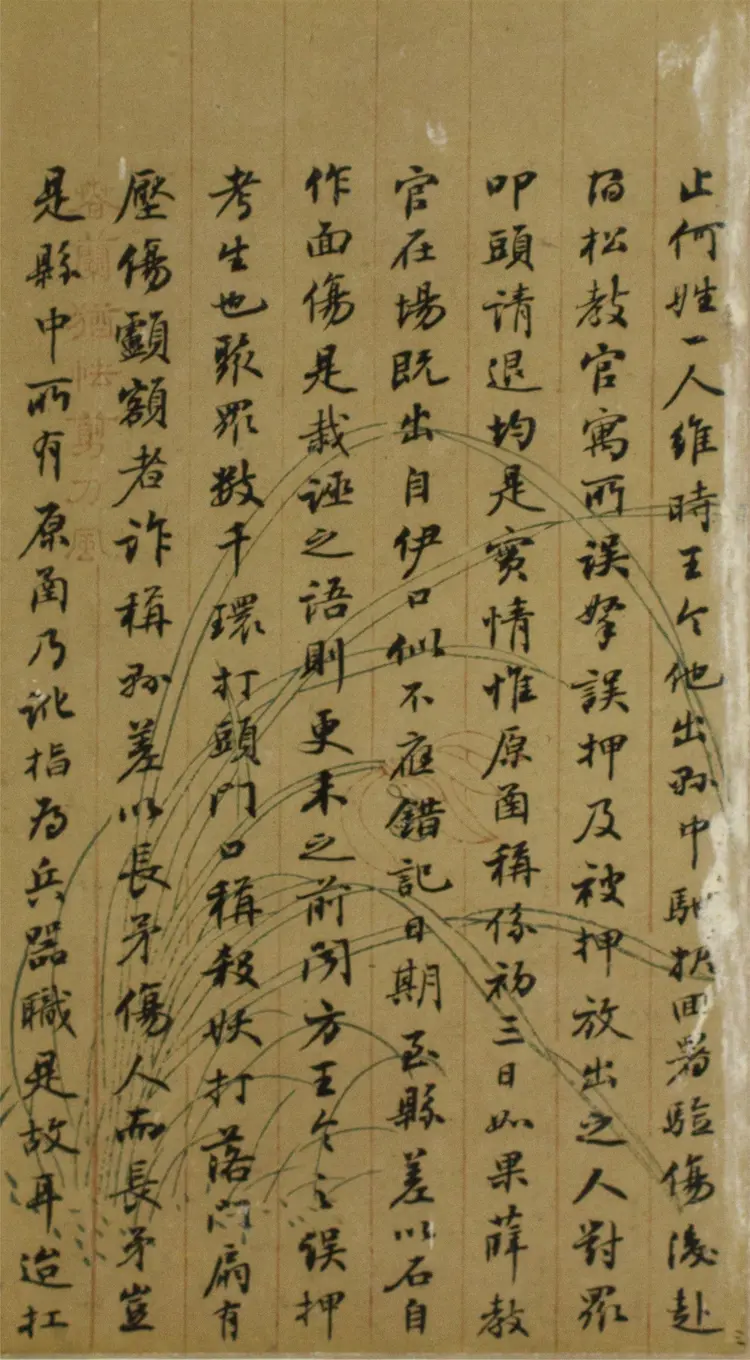 止何姓一人維時王令他出縣中馳報回署驗傷後赴
松教官寓所誤拏誤押及被押放出之人對眾
叩頭請退均是實情惟原函稱係初三日如果薛教
官在場既出自伊口似不應錯記日期至縣差以石自
作面傷是栽誣之語則更未之前聞方王令之誤押
考生也聚眾數千環打頭門口稱殺妖打落門扇有
壓傷顱額者詐稱縣差以長矛傷人而長矛豈
是縣中所有原函乃訛指為兵器職是故耳迨扛
春蘭猶怯剪刀風